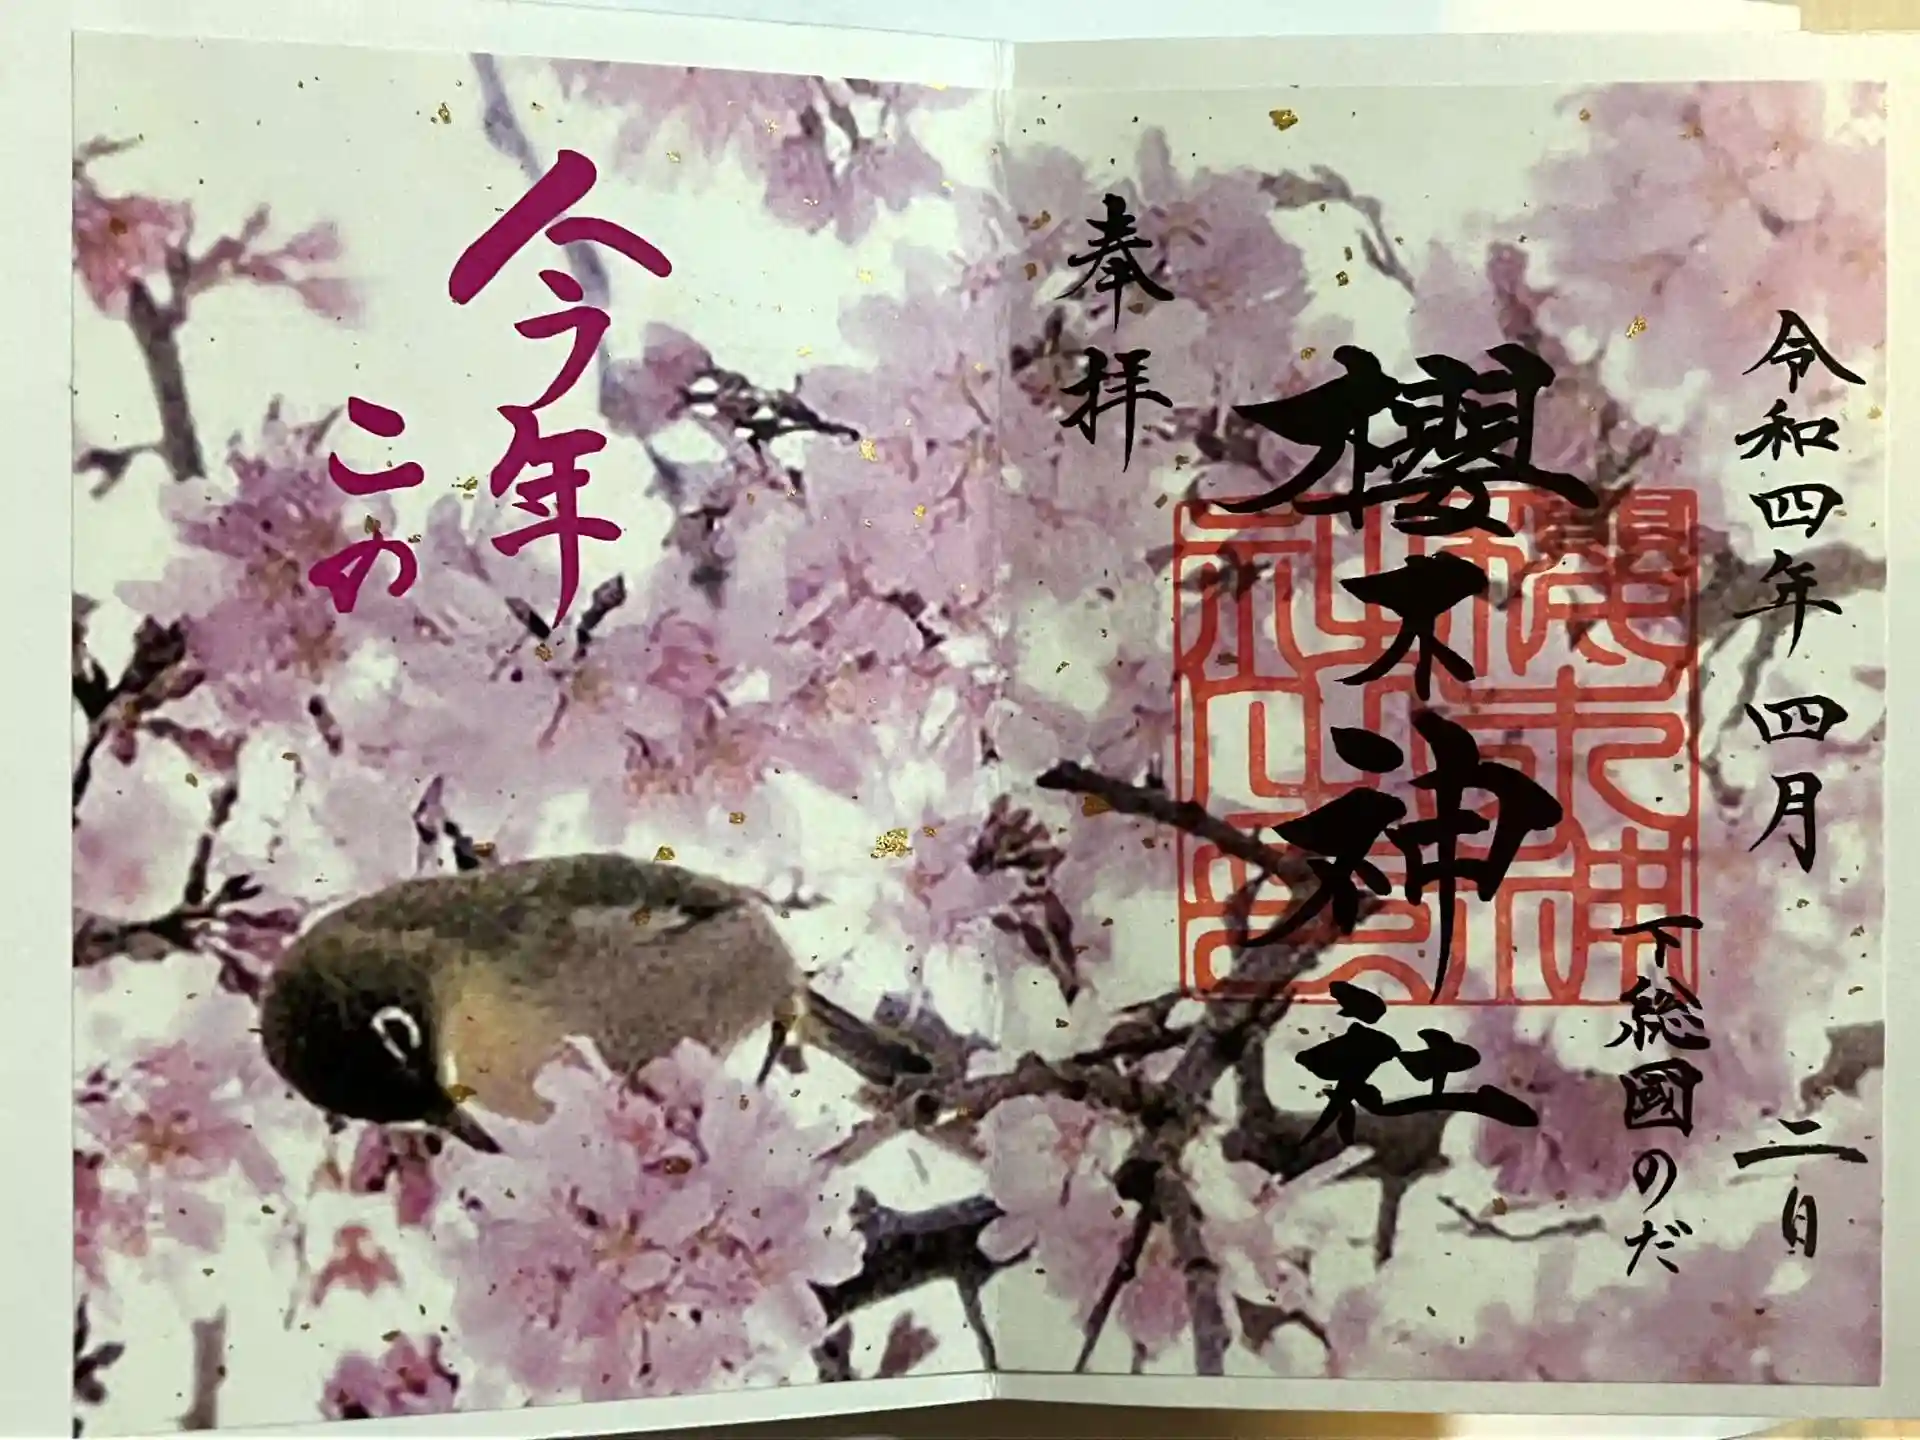 令和四年四月二日
下総國のだ
櫻木神社
奉拝
今年
この